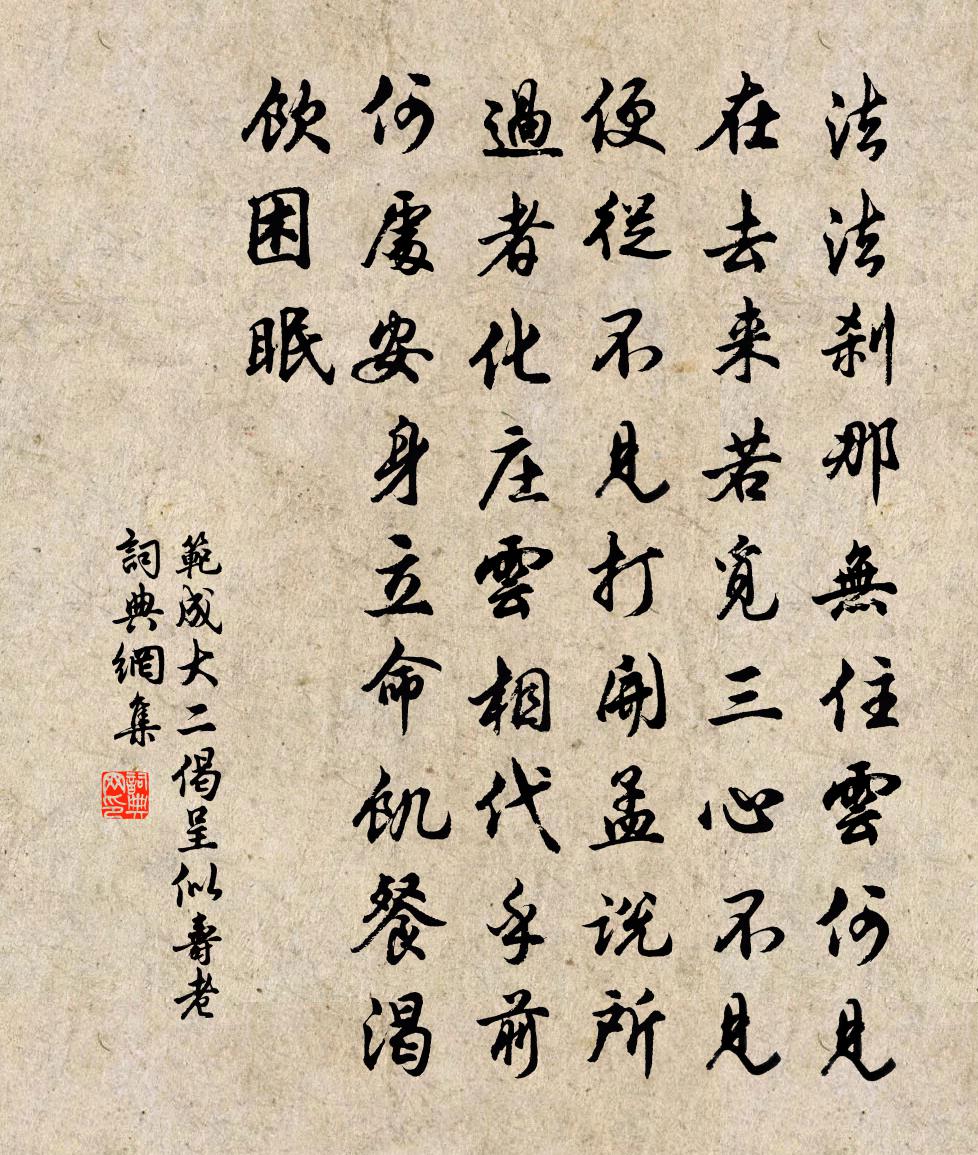 法法刹那無住雲何見
在去来若覓三心不見
便從不見打開孟說所
過者化庄雲相代乎前
何處安身立命飢餐渴
飲困眠
範成大二偈呈似壽老
詞典網集
詞典网印